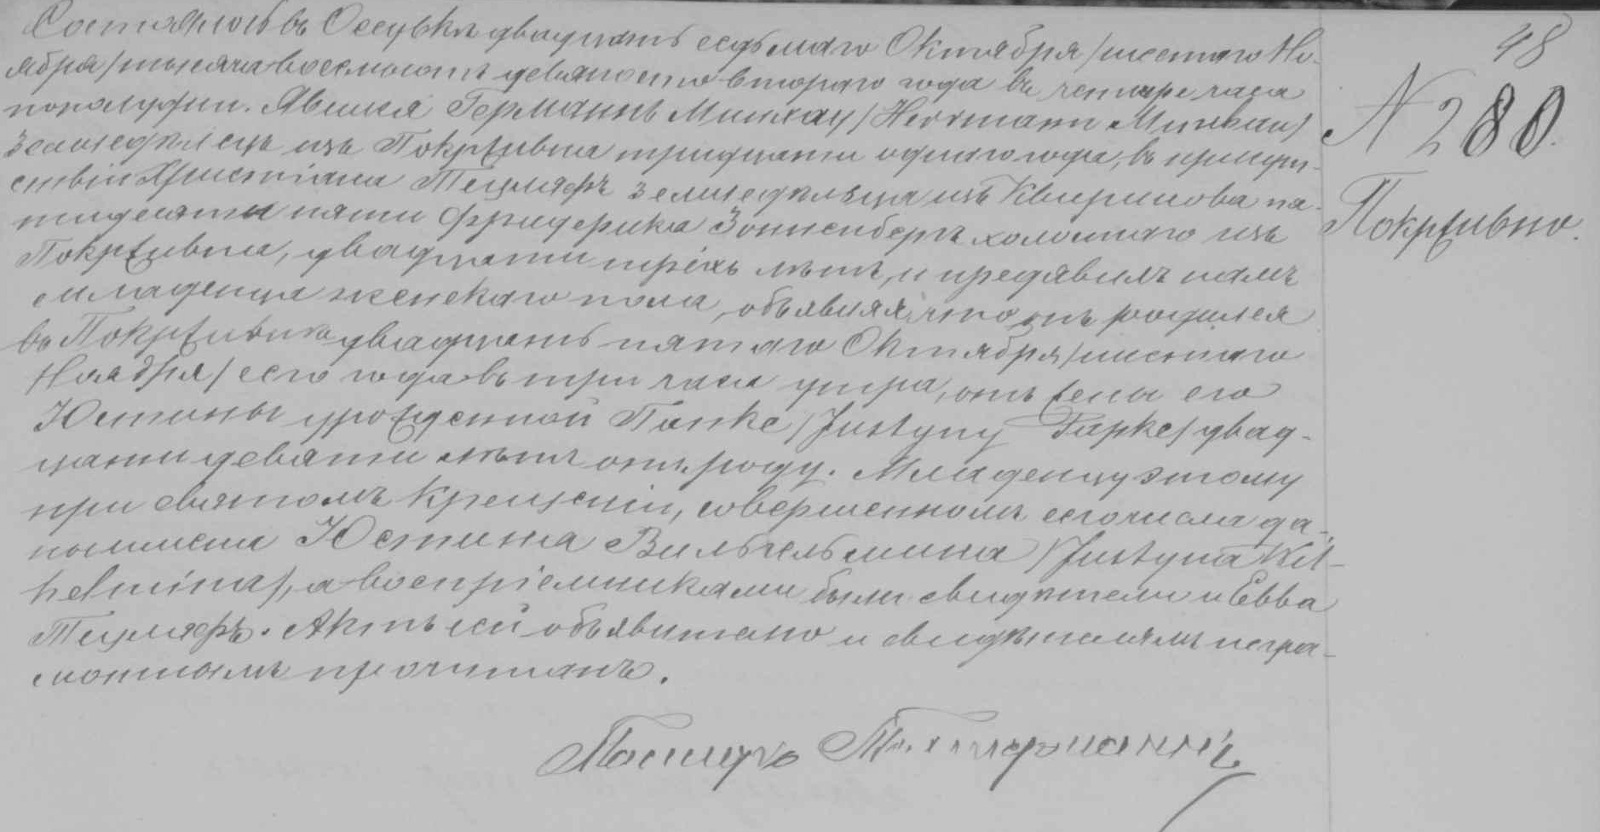 48
№ 280.
Покрживно.
Состоялось въ Оссувкѣ двадцать седьмаго Октября /шестаго Но-
ября/ тысяча восемьсотъ девяносто втораго года въ четыре часа
пополудни. Явился Германнъ /Herrmann
земледѣлецъ изъ Покрживна тридцати одного года, въ присут-
ствіи Христіана земледѣльца изъ Квиринова пя-
тидесяти пяти Фридерика Зонненбергъ холостаго изъ
Покрживна, двадцати трехъ лѣтъ, и предявилъ намъ
младенца женскаго пола, объявляя, что онъ родился
въ Покрживнѣ двадцать пятаго Октября /шестаго
Ноября/ сего года въ три часа утра, отъ жены его
Юстины урожденной Папке /Justyny Papke/ двад-
цати девяти лѣтъ отъ роду. Младенцу этому
при святомъ крещеніи, совершенномъ сего числа да-
но имена Юстина Вильгельмина /Justyna Wil-
helmina/, а воспріемниками были свидѣтели и Евва
Актъ сей объявителю и свидѣтелямъ негра-
мотнымъ прочитанъ.
Пасторъ